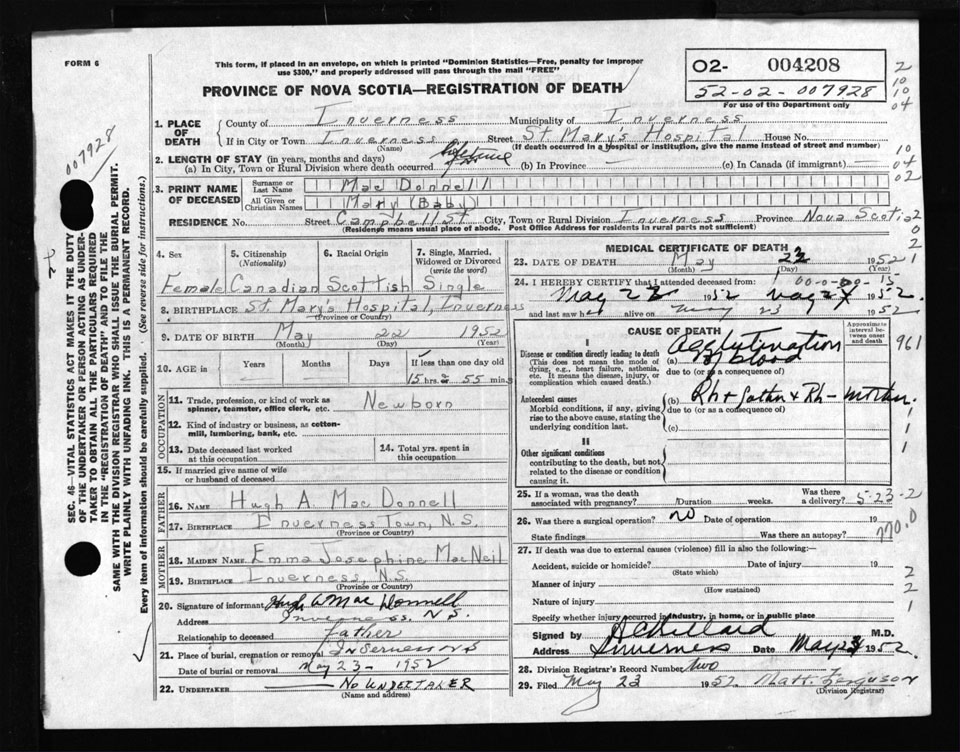 FORM 6
This form, if placed in an envelope, on which is printed "Dominion Statistics—Free, penalty for improper
use $300," and properly addressed will pass through the mail "FREE"
PROVINCE OF NOVA SCOTIA—REGISTRATION OF DEATH
O2- 004208
52-02-007928
For use of the Department only
007928
1. PLACE OF DEATH
County of Inverness Municipality of Inverness
If in City or Town Inverness Street St Mary's Hospital House No.
(Name) (If death occurred in a hospital or institution, give the name instead of street and number)
2. LENGTH OF STAY (in years, months and days)
(a) In City, Town or Rural Division where death occurred Life time (b) In Province — (c) In Canada (if immigrant) —
3. PRINT NAME OF DECEASED
Surname or Last Name MacDonnell
All Given or Christian Names Mary (Baby)
RESIDENCE No. Street Campbell St City, Town or Rural Division Inverness Province Nova Scotia
(Residence means usual place of abode. Post Office Address for residents in rural parts not sufficient)
4. Sex Female
5. Citizenship (Nationality) Canadian
6. Racial Origin Scottish
7. Single, Married, Widowed or Divorced (write the word) Single
8. BIRTHPLACE St. Mary's Hospital, Inverness
(Province or Country)
9. DATE OF BIRTH May 22 1952
(Month) (Day) (Year)
10. AGE in Years Months Days If less than one day old
15 hrs. 55 mins
OCCUPATION
11. Trade, profession, or kind of work as spinner, teamster, office clerk, etc. Newborn
12. Kind of industry or business, as cotton-mill, lumbering, bank, etc.
13. Date deceased last worked at this occupation
14. Total yrs. spent in this occupation
15. If married give name of wife or husband of deceased
FATHER
16. NAME Hugh A MacDonnell
17. BIRTHPLACE Inverness Town, N.S.
(Province or Country)
MOTHER
18. MAIDEN NAME Emma Josephine MacNeil
19. BIRTHPLACE Inverness, N.S.
(Province or Country)
20. Signature of informant Hugh A MacDonnell
Address Inverness. N.S.
Relationship to deceased father
21. Place of burial, cremation or removal Inverness N S
Date of burial or removal May 23 - 1952
22. UNDERTAKER No UNDERTAKER
(Name and address)
MEDICAL CERTIFICATE OF DEATH
23. DATE OF DEATH May 1952
(Month) (Day) (Year)
24. I HEREBY CERTIFY that I attended deceased from:
May 1952 May 1952
and last saw h alive on May 23 1952
CAUSE OF DEATH
Approximate interval between onset and death
961
I
Disease or condition directly leading to death
(This does not mean the mode of dying, e.g., heart failure, asthenia, etc. It means the disease, injury, or complication which caused death.)
(a) Agglutination of blood
due to (or as a consequence of)
Antecedent causes
Morbid conditions, if any, giving rise to the above cause, stating the underlying condition last.
(b) Rh+ father & Rh- mother.
due to (or as a consequence of)
(c)
II
Other significant conditions
contributing to the death, but not related to the disease or condition causing it.
25. If a woman, was the death associated with pregnancy? Duration weeks. Was there a delivery?
5-23-2
26. Was there a surgical operation? no Date of operation 19
State findings Was there an autopsy?
770.0
27. If death was due to external causes (violence) fill in also the following:—
Accident, suicide or homicide? Date of injury 19
(State which)
Manner of injury
(How sustained)
Nature of injury
Specify whether injury occurred in industry, in home, or in public place
Signed by M.D.
Address Inverness Date May 1952.
28. Division Registrar's Record Number two
29. Filed May 23 1952. Matt. Ferguson
(Division Registrar)
SEC. 46—VITAL STATISTICS ACT MAKES IT THE DUTY
OF THE UNDERTAKER OR PERSON ACTING AS UNDER-
TAKER TO OBTAIN ALL THE PARTICULARS REQUIRED
IN THE "REGISTRATION OF DEATH" AND TO FILE THE
SAME WITH THE DIVISION REGISTRAR WHO SHALL ISSUE THE BURIAL PERMIT.
WRITE PLAINLY WITH UNFADING INK. THIS IS A PERMANENT RECORD.
Every item of information should be carefully supplied. (See reverse side for instructions.)